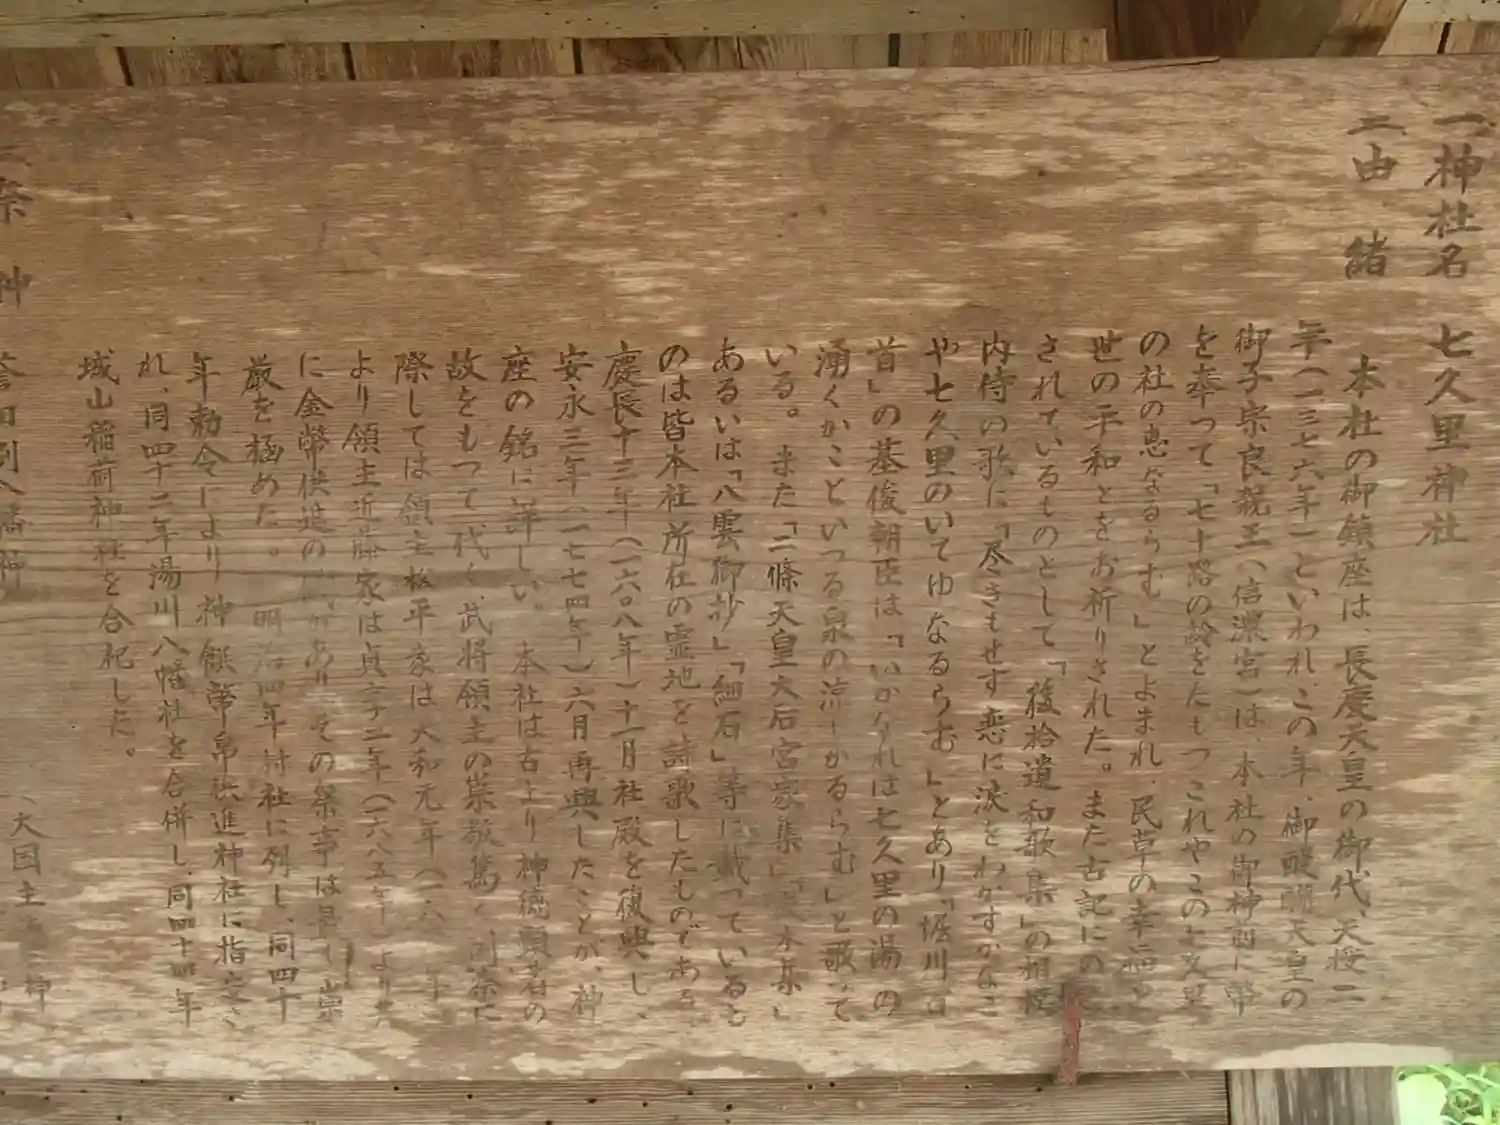 一、神社名 七久里神社
二、由緒
本社の御鎮座は、長慶天皇の御代、天授二
年(一三七六年)といわれ、この年、御醍醐天皇の
御子宗良親王(信濃宮)は、本社の御神前に幣
を奉って「七十路の齢をたもつこれやこの七久里
の社の恵なるらむ」とよまれ、民草の幸福と
世の平和とをお祈りされた。また古記に
されているものとして「後拾遺和歌集」の相模
内侍の歌に「尽きもせす恋に涙をわかすかなこ
や七久里のいてゆなるらむ」とあり「堀川百
首」の基俊朝臣は「いかなれは七久里の湯の
湧くかこといつる泉の涼しかるらむ」と歌って
いる。また「二條天皇大后宮家集」「木集」
あるいは「八雲御抄」「細石」等に載っているも
のは皆本社所在の霊地を詩歌したものである。
慶長十三年(一六〇八年)十一月社殿を復興し、
安永三年(一七七四年)六月再興したことが、神
座の銘に詳しい。本社は古より神徳顕著の
故をもって代々、武将領主の崇敬篤く、例祭に
際しては領主松平家は天和元年(一六 年
より領主近藤家は貞享二年(一六八五年)より共
に金幣供進の があり、その祭事は尊
厳を極めた。明治四年村社に列し、同四十
年勅令により神饌幣帛供進神社に指定さ
れ、同四十二年湯川八幡社を合併し、同四十四年
城山稲荷神社を合祀した。
祭神 誉田別八幡神
(大国主